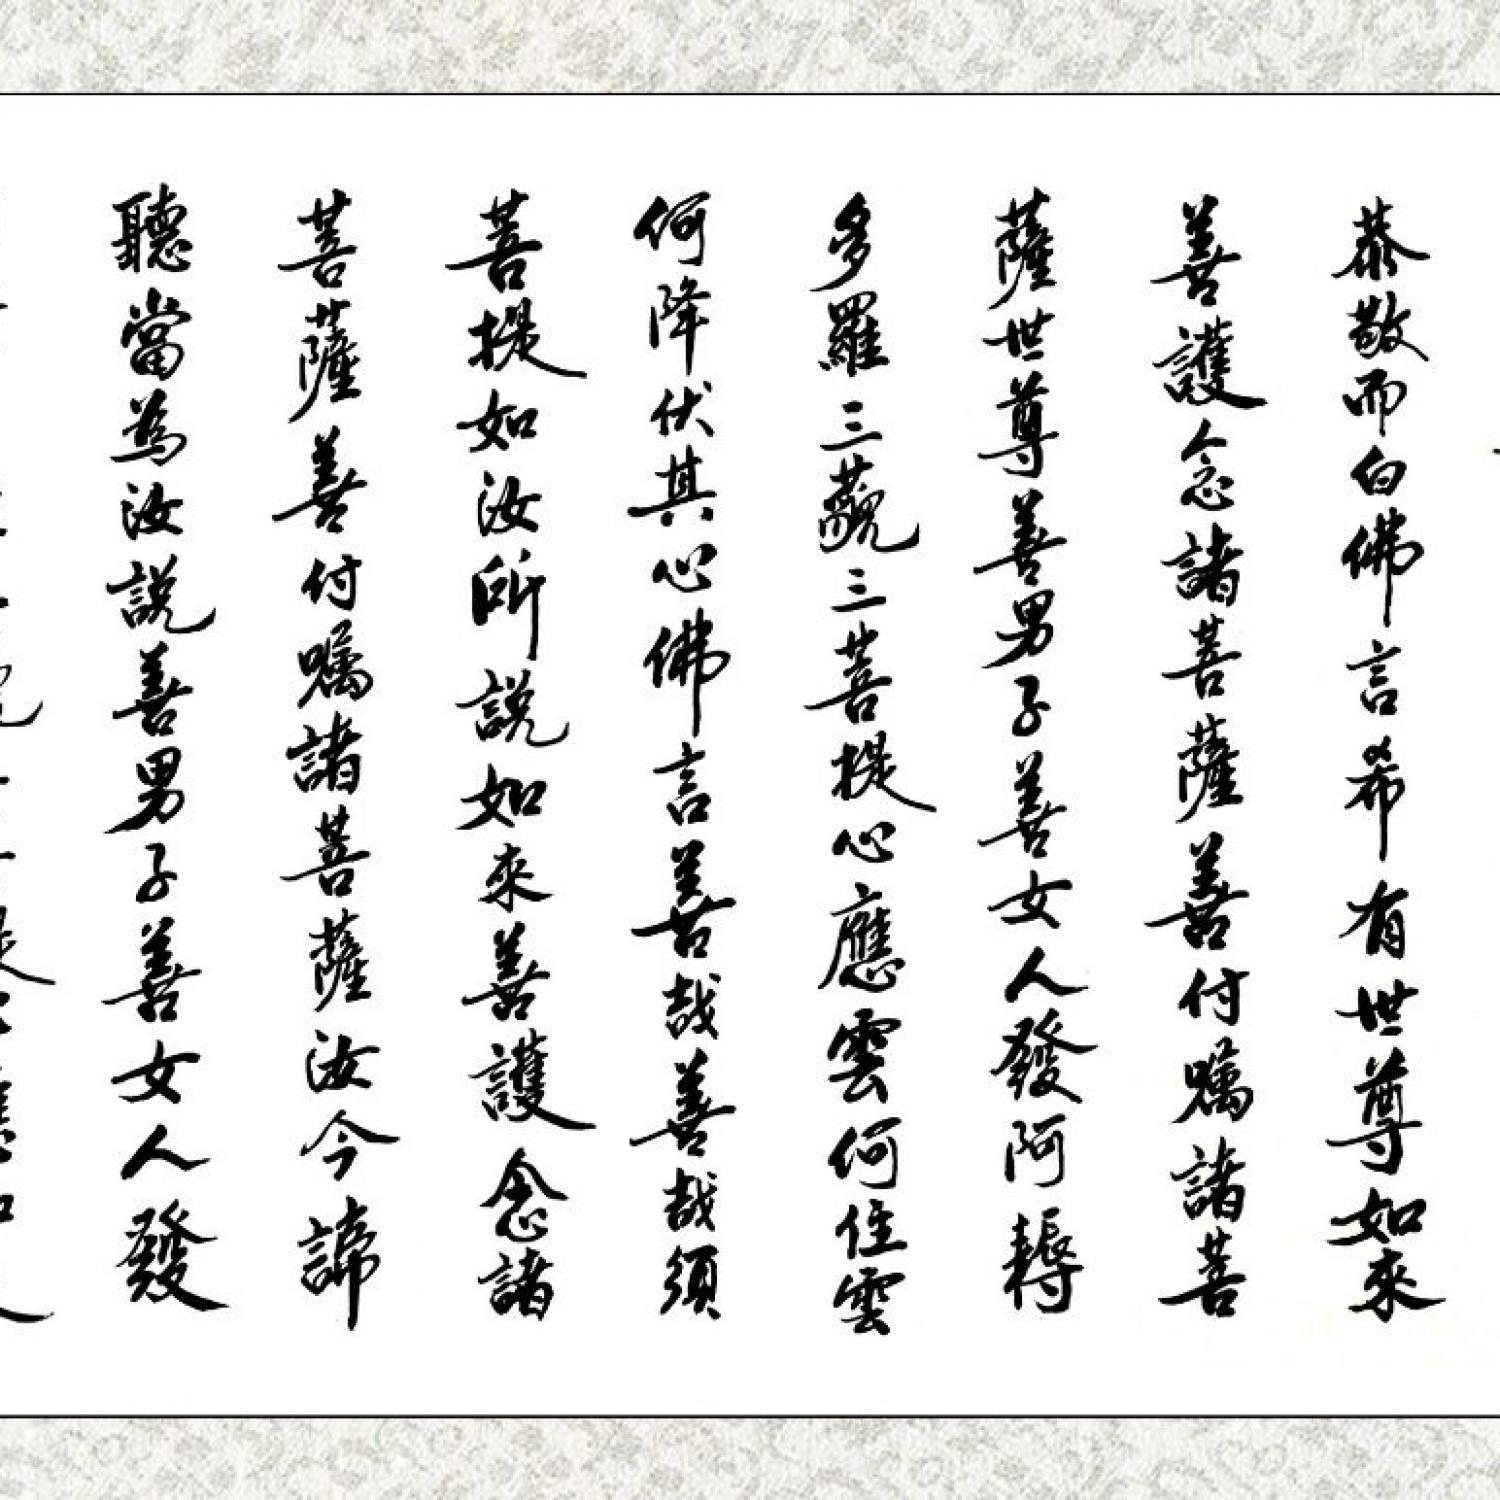 恭敬而白佛言希有世尊如來
善護念諸菩薩善付囑諸菩
薩世尊善男子善女人發阿耨
多羅三藐三菩提心應雲何住雲
何降伏其心佛言善哉善哉須
菩提如汝所說如來善護念諸
菩薩善付囑諸菩薩汝今諦
聽當為汝說善男子善女人發